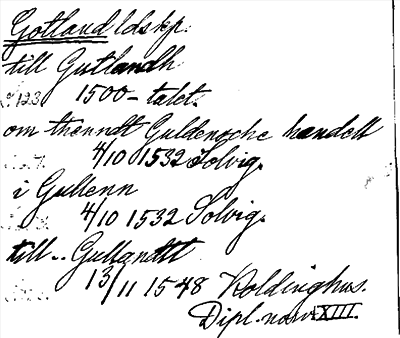 Gotland ldskp.
till Gutlandh
1500-talet.
om thenndt Guldensche handell
4/10 1532 Solvig.
i Gullenn
4/10 1532 Solvig.
till.. Gullandtt
13/11 1548 Koldinghus.
Dipl. norv. XIII.